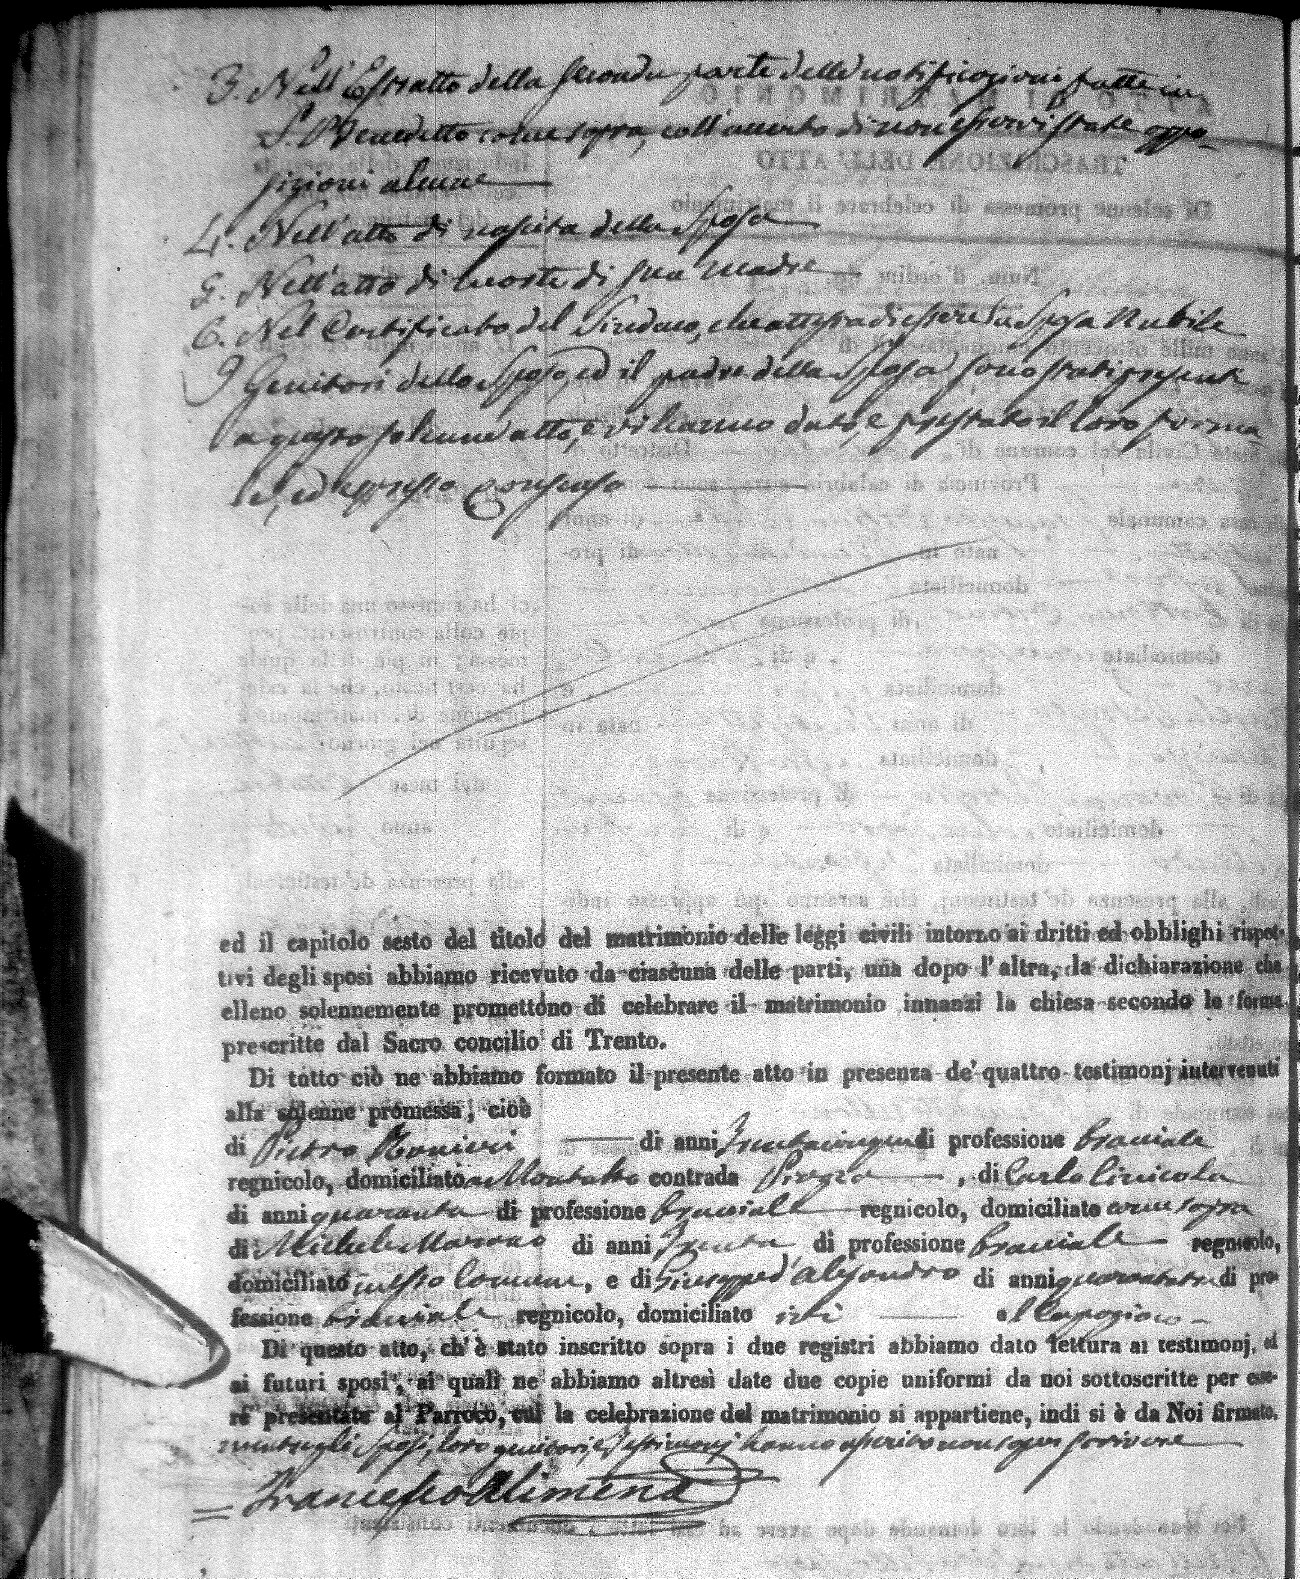 3. Nell'Estratto della seconda parte delle notificazioni fatte in
S. Benedetto come sopra, coll'accerto di non esservi state oppo-
sizioni alcune
4. Nell'atto di nascita della Sposa
5. Nell'atto di morte di sua madre
6. Nel Certificato del Sindaco, che attesta di essere la Sposa Nubile
I Genitori dello Sposo, ed il padre della Sposa sono stati presenti
a questo solenne atto, e vi hanno dato, e prestato il loro forma-
le, ed espresso consenso
ed il capitolo sesto del titolo del matrimonio delle leggi civili intorno ai dritti ed obblighi rispet-
tivi degli sposi abbiamo ricevuto da ciascuna delle parti, una dopo l'altra, la dichiarazione che
elleno solennemente promettono di celebrare il matrimonio innanzi la chiesa secondo le forme
prescritte dal Sacro concilio di Trento.
Di tutto ciò ne abbiamo formato il presente atto in presenza de' quattro testimonj intervenuti
alla solenne promessa, cioè
di Pietro di anni trentacinque di professione bracciale
regnicolo, domiciliato a Montalto contrada , di Carlo Cinicola
di anni quaranta di professione bracciale regnicolo, domiciliato come sopra
di Michele di anni trenta di professione bracciale regnicolo,
domiciliato in esso Comune, e di Giuseppe d'Alesandro di anni di pro-
fessione bracciale regnicolo, domiciliato ivi
Di questo atto, ch'è stato inscritto sopra i due registri abbiamo dato lettura ai testimonj, ed
ai futuri sposi, ai quali ne abbiamo altresì date due copie uniformi da noi sottoscritte per esse-
re presentate al Parroco, cui la celebrazione del matrimonio si appartiene, indi si è da Noi firmato,
mentre gli Sposi, loro genitori, e Testimonj hanno asserito non saper scrivere
= Francesco Alimena